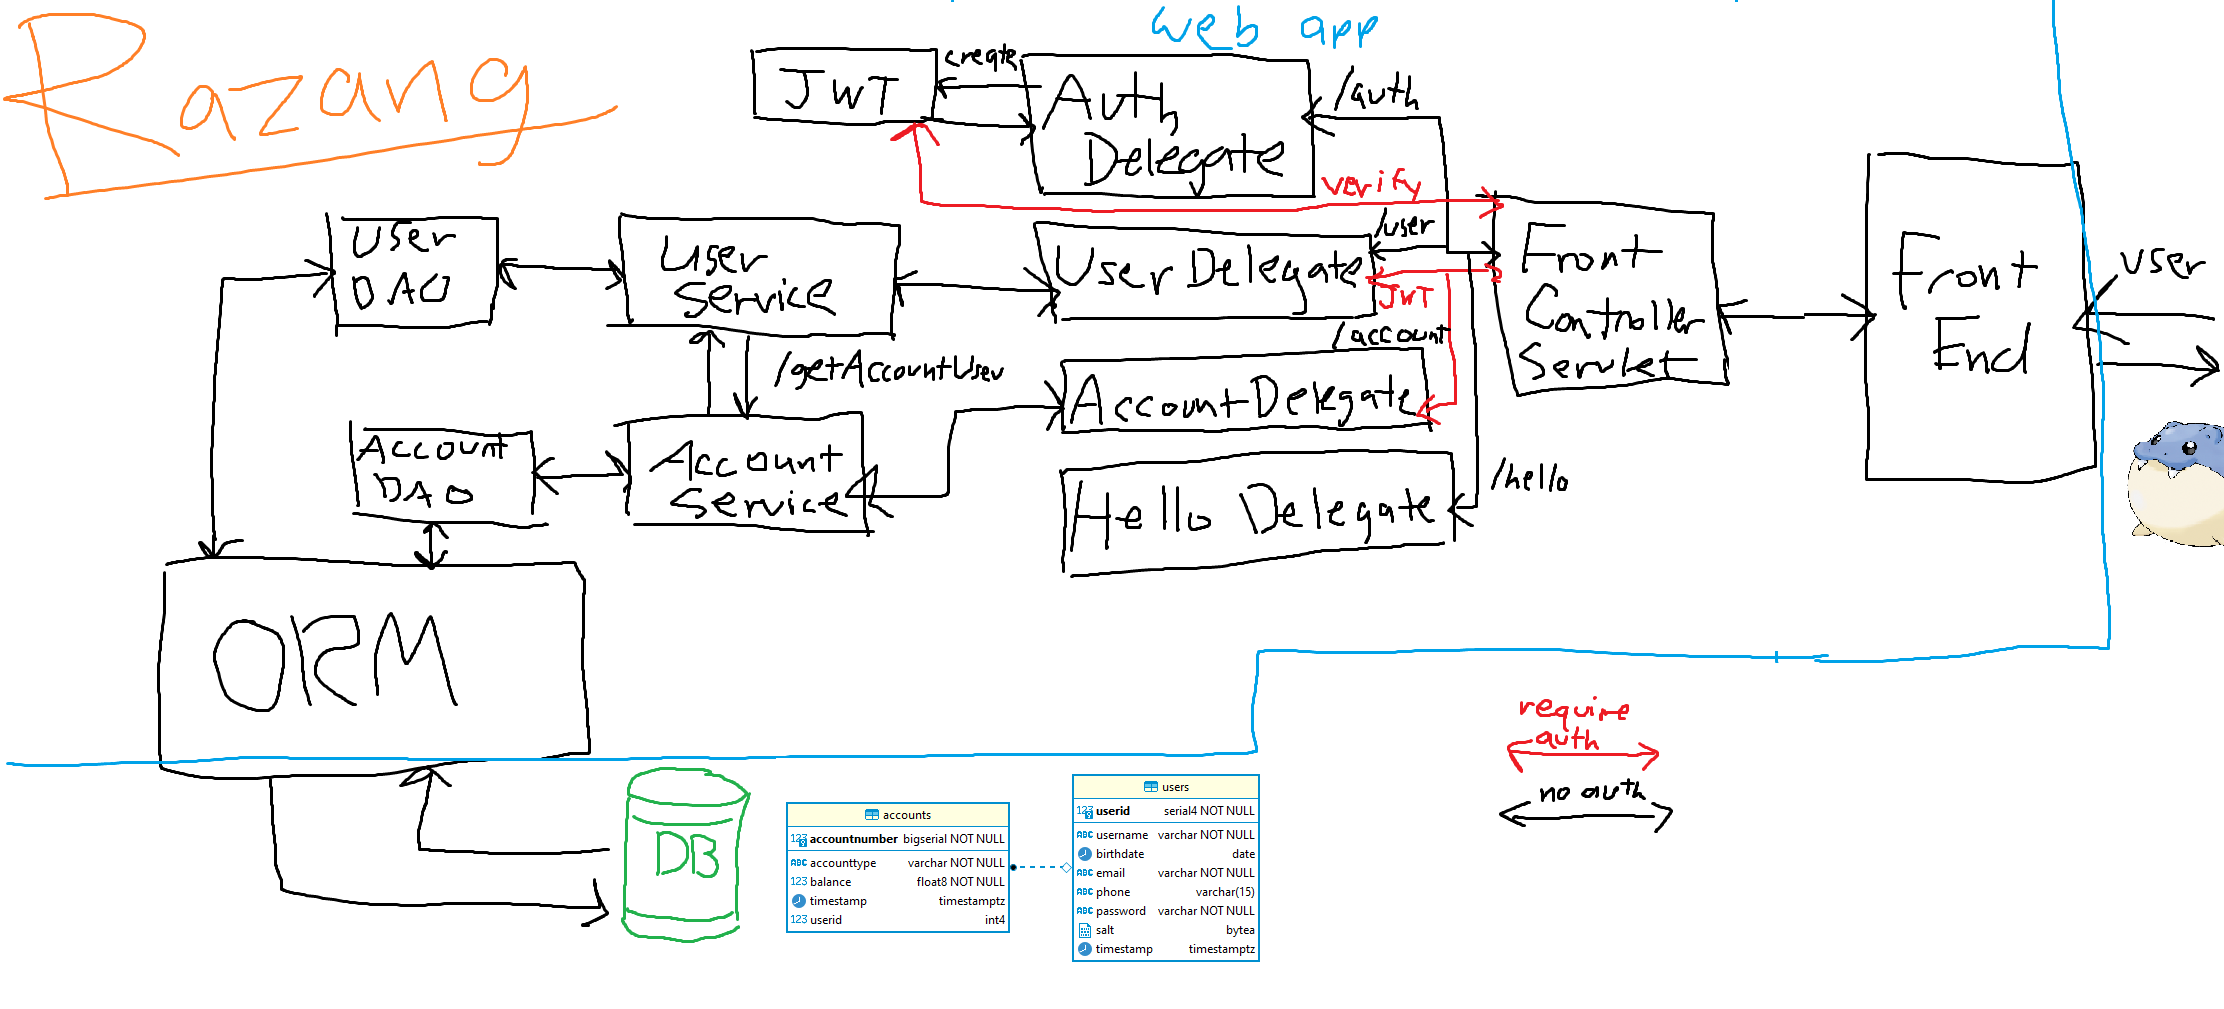 Razang
web app
JWT
create
Auth
Delegate
/auth
verify
User
DAO
User
Service
User Delegate
/user
JWT
Front
Controller
Servlet
Front
End
user
/getAccountUser
/account
Account Delegate
Account
DAO
Account
Service
Hello Delegate
/hello
ORM
require
auth
no auth
DB
accounts
123 accountnumber bigserial NOT NULL
ABC accounttype varchar NOT NULL
123 balance float8 NOT NULL
timestamp timestamptz
123 userid int4
users
123 userid serial4 NOT NULL
ABC username varchar NOT NULL
birthdate date
ABC email varchar NOT NULL
ABC phone varchar(15)
ABC password varchar NOT NULL
salt bytea
timestamp timestamptz